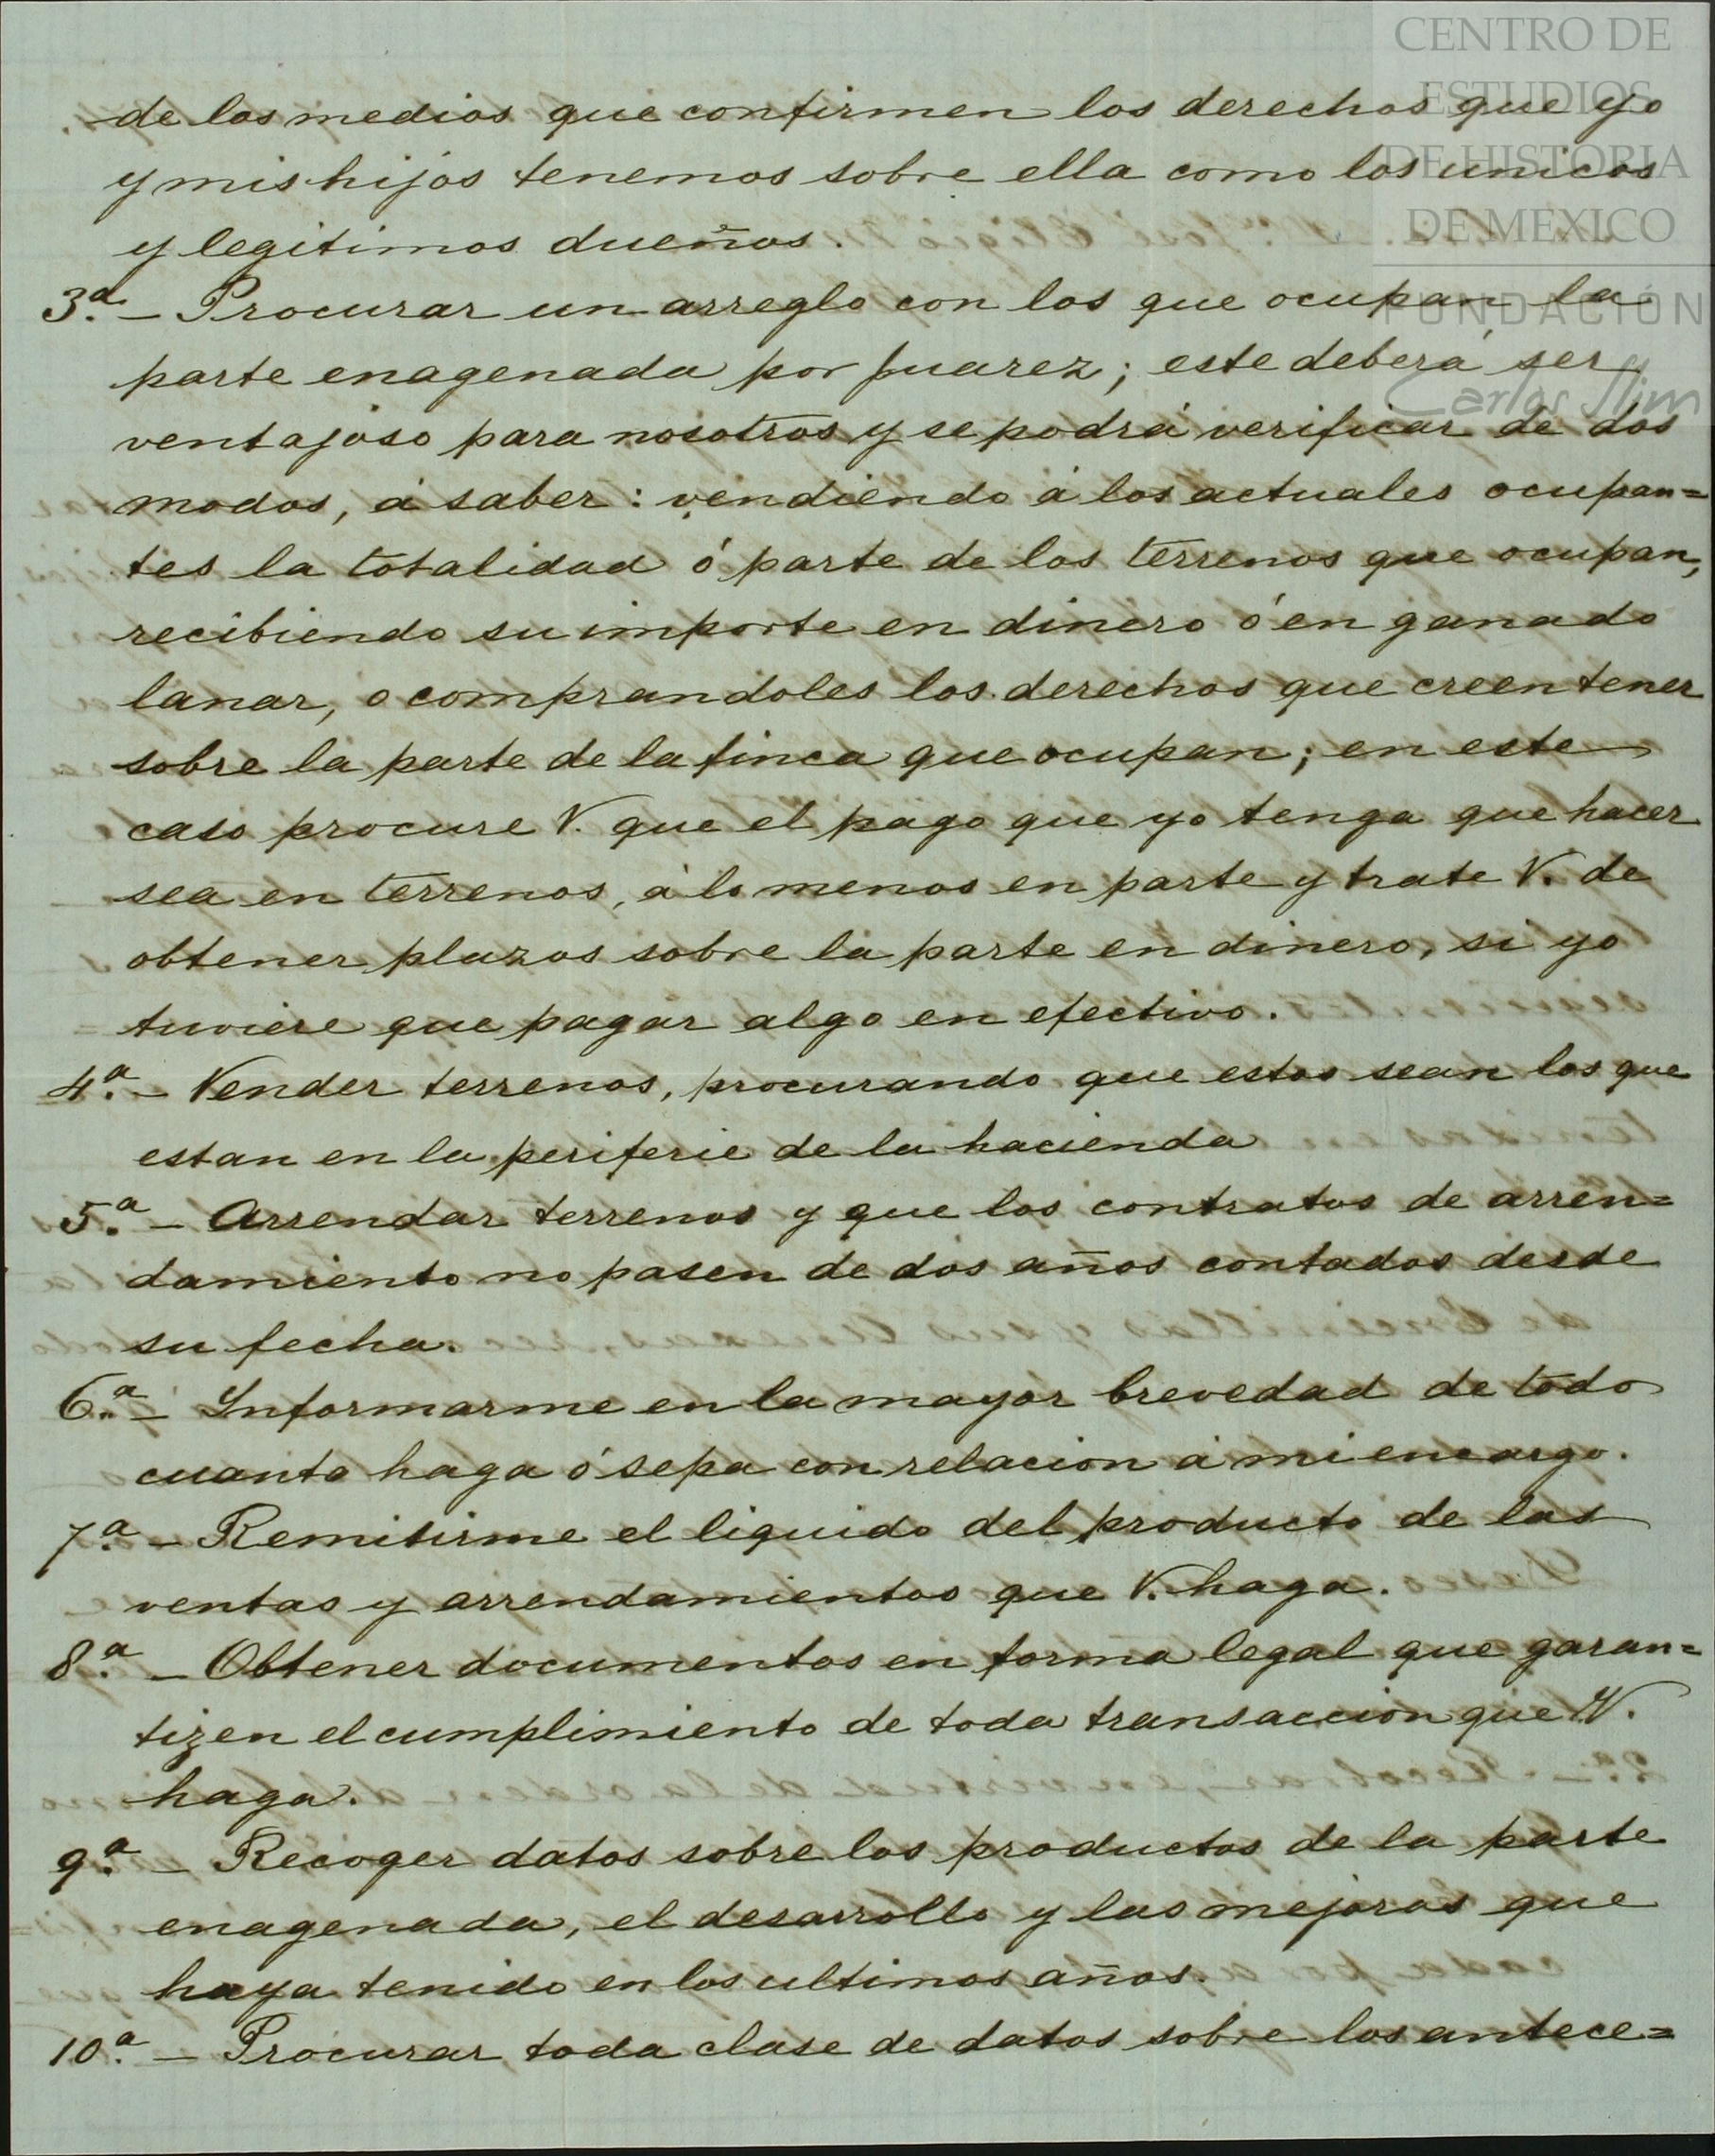 CENTRO DE
ESTUDIOS
DE HISTORIA
DE MEXICO
FUNDACIÓN
Carlos Slim
de los medios que confirmen los derechos que yo
y mis hijos tenemos sobre ella como los unicos
y legitimos dueños.
3.ª - Procurar un arreglo con los que ocupan la
parte enagenada por Juarez; este deberá ser
ventajoso para nosotros y se podrá verificar de dos
modos, á saber: vendiendo á los actuales ocupan=
tes la totalidad ó parte de los terrenos que ocupan,
recibiendo su importe en dinero ó en ganado
lanar, o comprandoles los derechos que creen tener
sobre la parte de la finca que ocupan; en este
caso procure V. que el pago que yo tenga que hacer
sea en terrenos, á lo menos en parte y trate V. de
obtener plazos sobre la parte en dinero, si yo
tuviere que pagar algo en efectivo.
4.ª - Vender terrenos, procurando que estos sean los que
estan en la periferie de la hacienda
5.ª - Arrendar terrenos y que los contratos de arren=
damiento no pasen de dos años contados desde
su fecha.
6.ª - Informarme en la mayor brevedad de todo
cuanto haga ó sepa con relacion á mi encargo.
7.ª - Remitirme el liquido del producto de las
ventas y arrendamientos que V. haga.
8.ª - Obtener documentos en forma legal que garan=
tizen el cumplimiento de toda transaccion que V.
haga.
9.ª - Recoger datos sobre los productos de la parte
enagenada, el desarrollo y las mejoras que
haya tenido en los ultimos años.
10.ª - Procurar toda clase de datos sobre los antece=